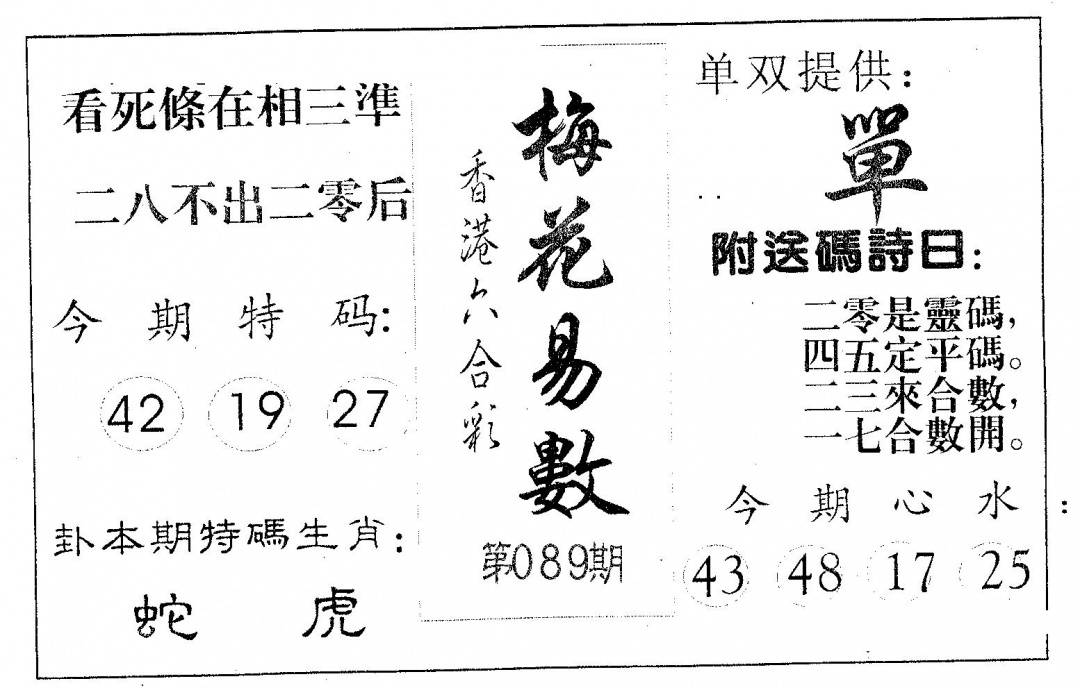 看死條在相三準
二八不出二零后
今期特码:
42 19 27
卦本期特碼生肖:
蛇 虎
香港六合彩
梅花易數
第089期
单双提供:
單
附送碼詩曰:
二零是靈碼,
四五定平碼。
二三來合數,
一七合數開。
今期心水:
43 48 17 25